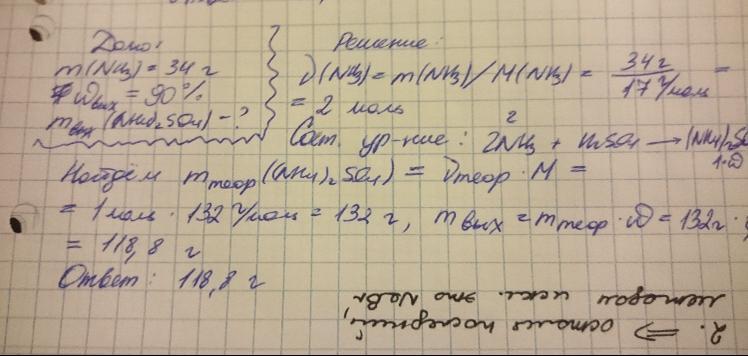 Дано:
m(NH3) = 34 г
ωвых = 90%
mвых((NH4)2SO4) - ?
Решение:
ν(NH3) = m(NH3)/M(NH3) = 34 г / 17 г/моль =
= 2 моль
Сост. ур-ние: 2NH3 + H2SO4 → (NH4)2SO
2
1
Найдём mтеор((NH4)2SO4) = νтеор · M =
= 1 моль · 132 г/моль = 132 г, mвых = mтеор · ω = 132г ·
= 118,8 г
Ответ: 118,8 г
2. ⇒ остался последний,
методом искл. это NaBr